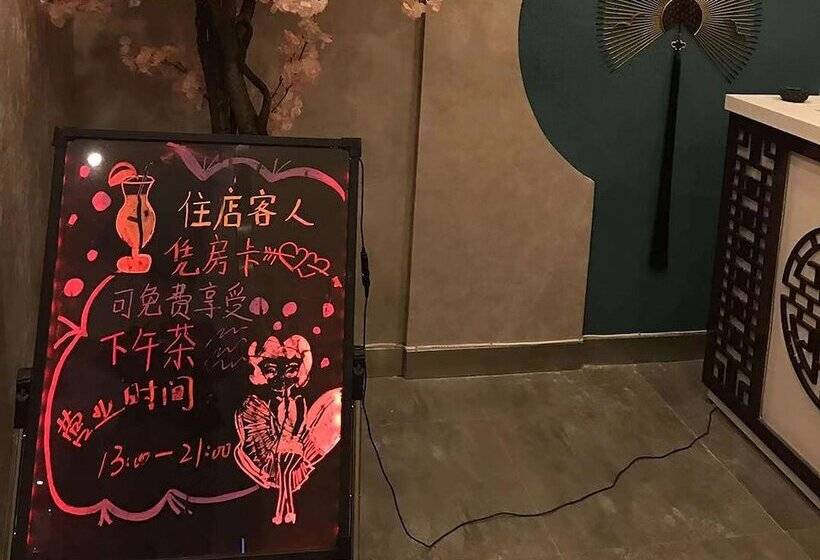 住店客人
凭房卡
可免费享受
下午茶
营业时间
13:00-21:00